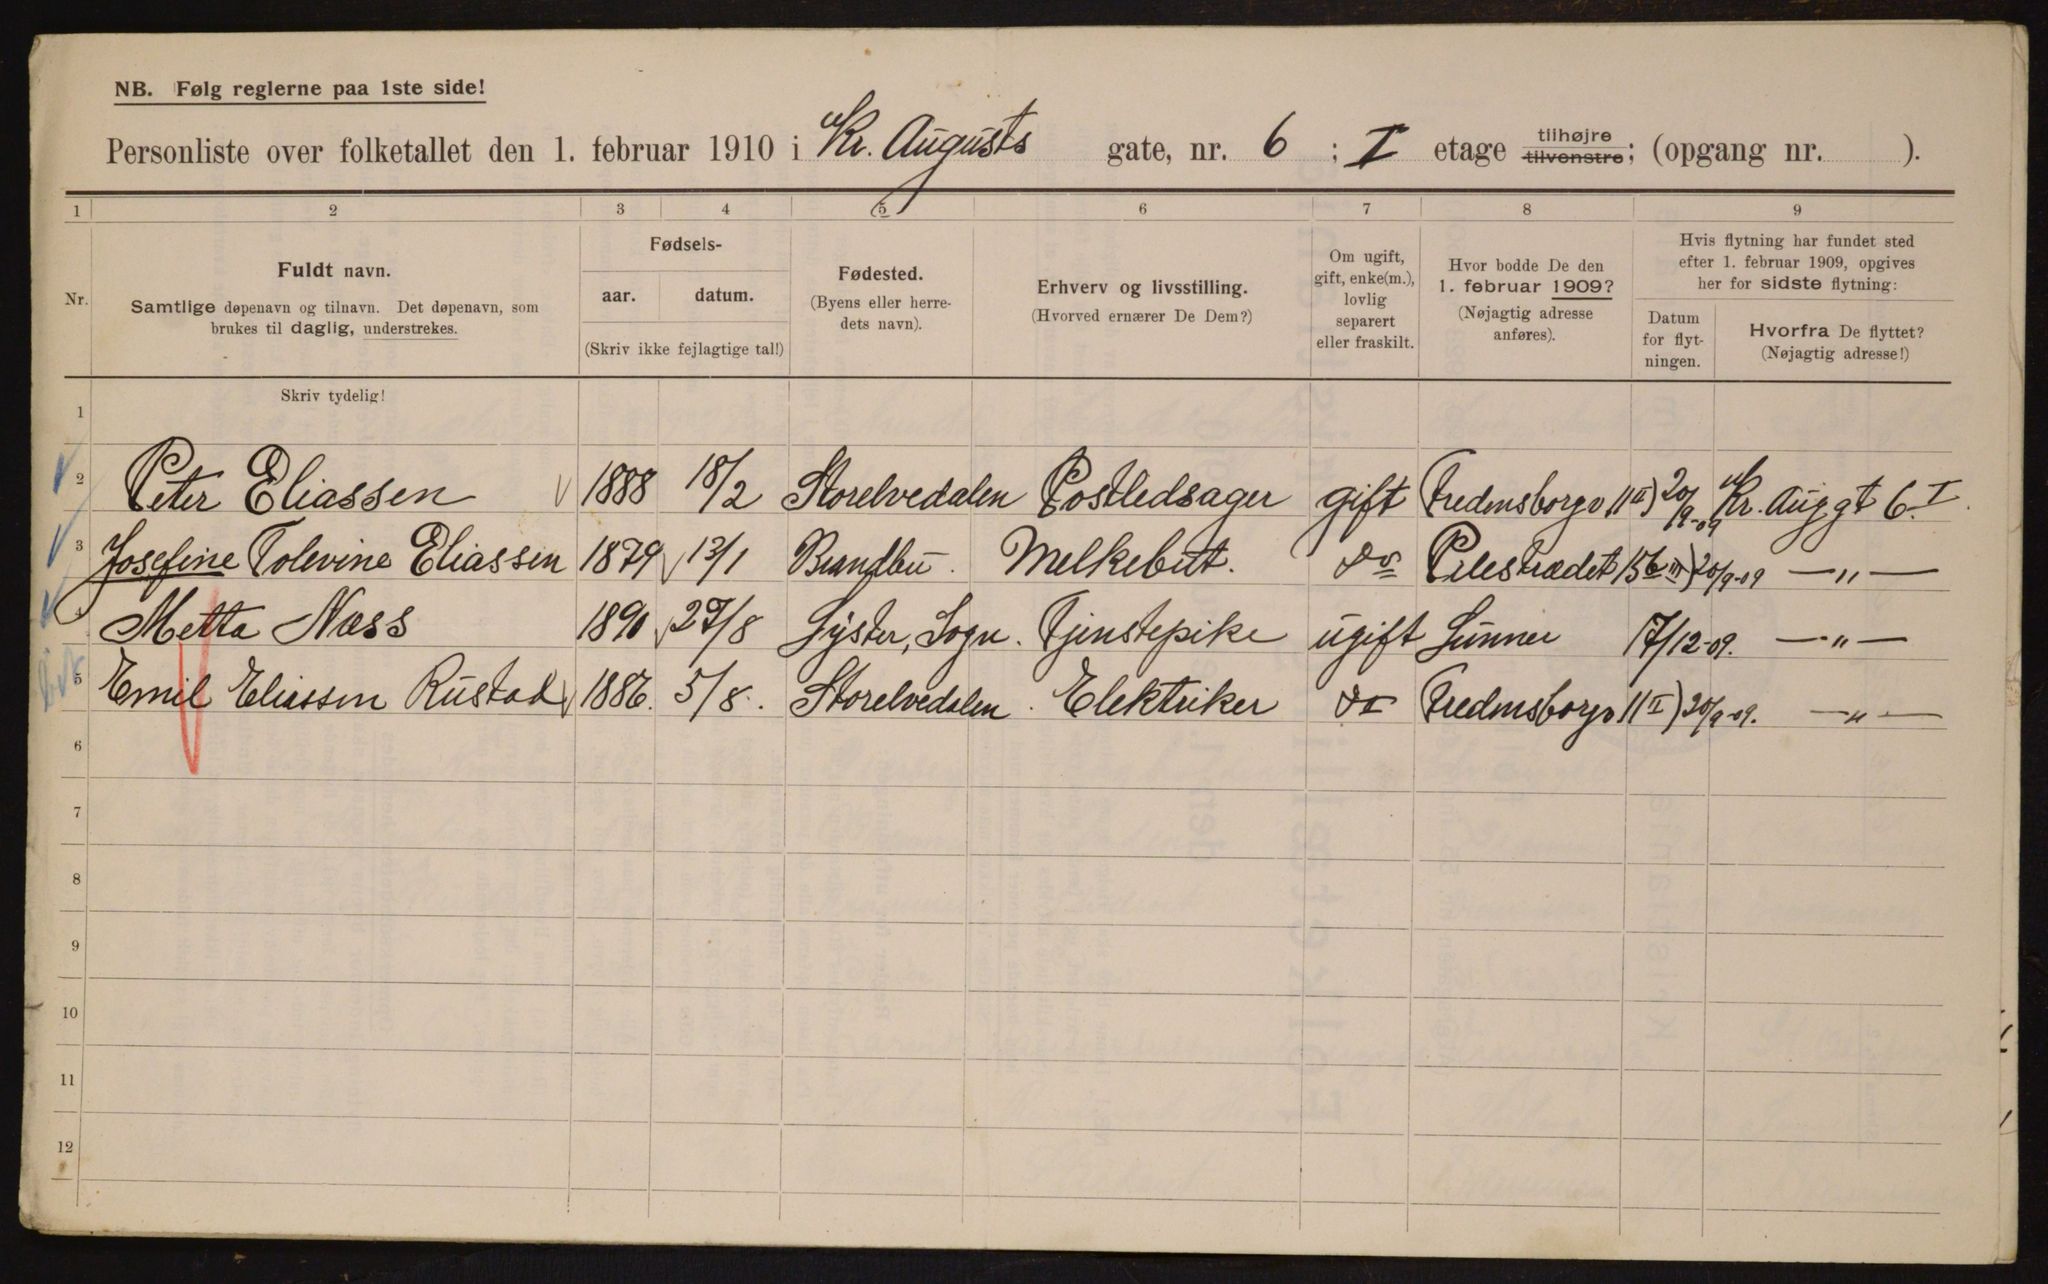 NB. Følg reglerne paa 1ste side!
Personliste over folketallet den 1. februar 1910 i Kr. Augusts gate, nr. 6 ; I etage tilhøjre tilvenstre; (opgang nr. ).
1 2 3 4 5 6 7 8 9
Nr.
Fuldt navn.
Samtlige døpenavn og tilnavn. Det døpenavn, som
brukes til daglig, understrekes.
Fødsels-
aar. datum.
(Skriv ikke fejlagtige tal!)
Fødested.
(Byens eller herre-
dets navn).
Erhverv og livsstilling.
(Hvorved ernærer De Dem?)
Om ugift,
gift, enke(m.),
lovlig
separert
eller fraskilt.
Hvor bodde De den
1. februar 1909?
(Nøjagtig adresse
anføres).
Hvis flytning har fundet sted
efter 1. februar 1909, opgives
her for sidste flytning:
Datum
for flyt-
ningen.
Hvorfra De flyttet?
(Nøjagtig adresse!)
Skriv tydelig!
1
2 Peter Eliassen 1888 18/2 Storelvedalen Postledsager gift Fredensborgv 11 II) 20/9-09 Kr. Auggt 6 I
3 Josefine Tolevine Eliassen 1879 13/1 Brandbu Melkebut. do Pilestrædet 156 III) 20/9-09 — „ —
Metta Næss 1890 27/8 Lyster, Sogn. Tjenstepike ugift Lunner 17/12-09. — „ —
5 Emil Eliassen Rustad 1886. 5/8. Storelvedalen. Elektriker do Fredensborgv 11 I) 20/9-09. — „ —
6
7
8
9
10
11
12